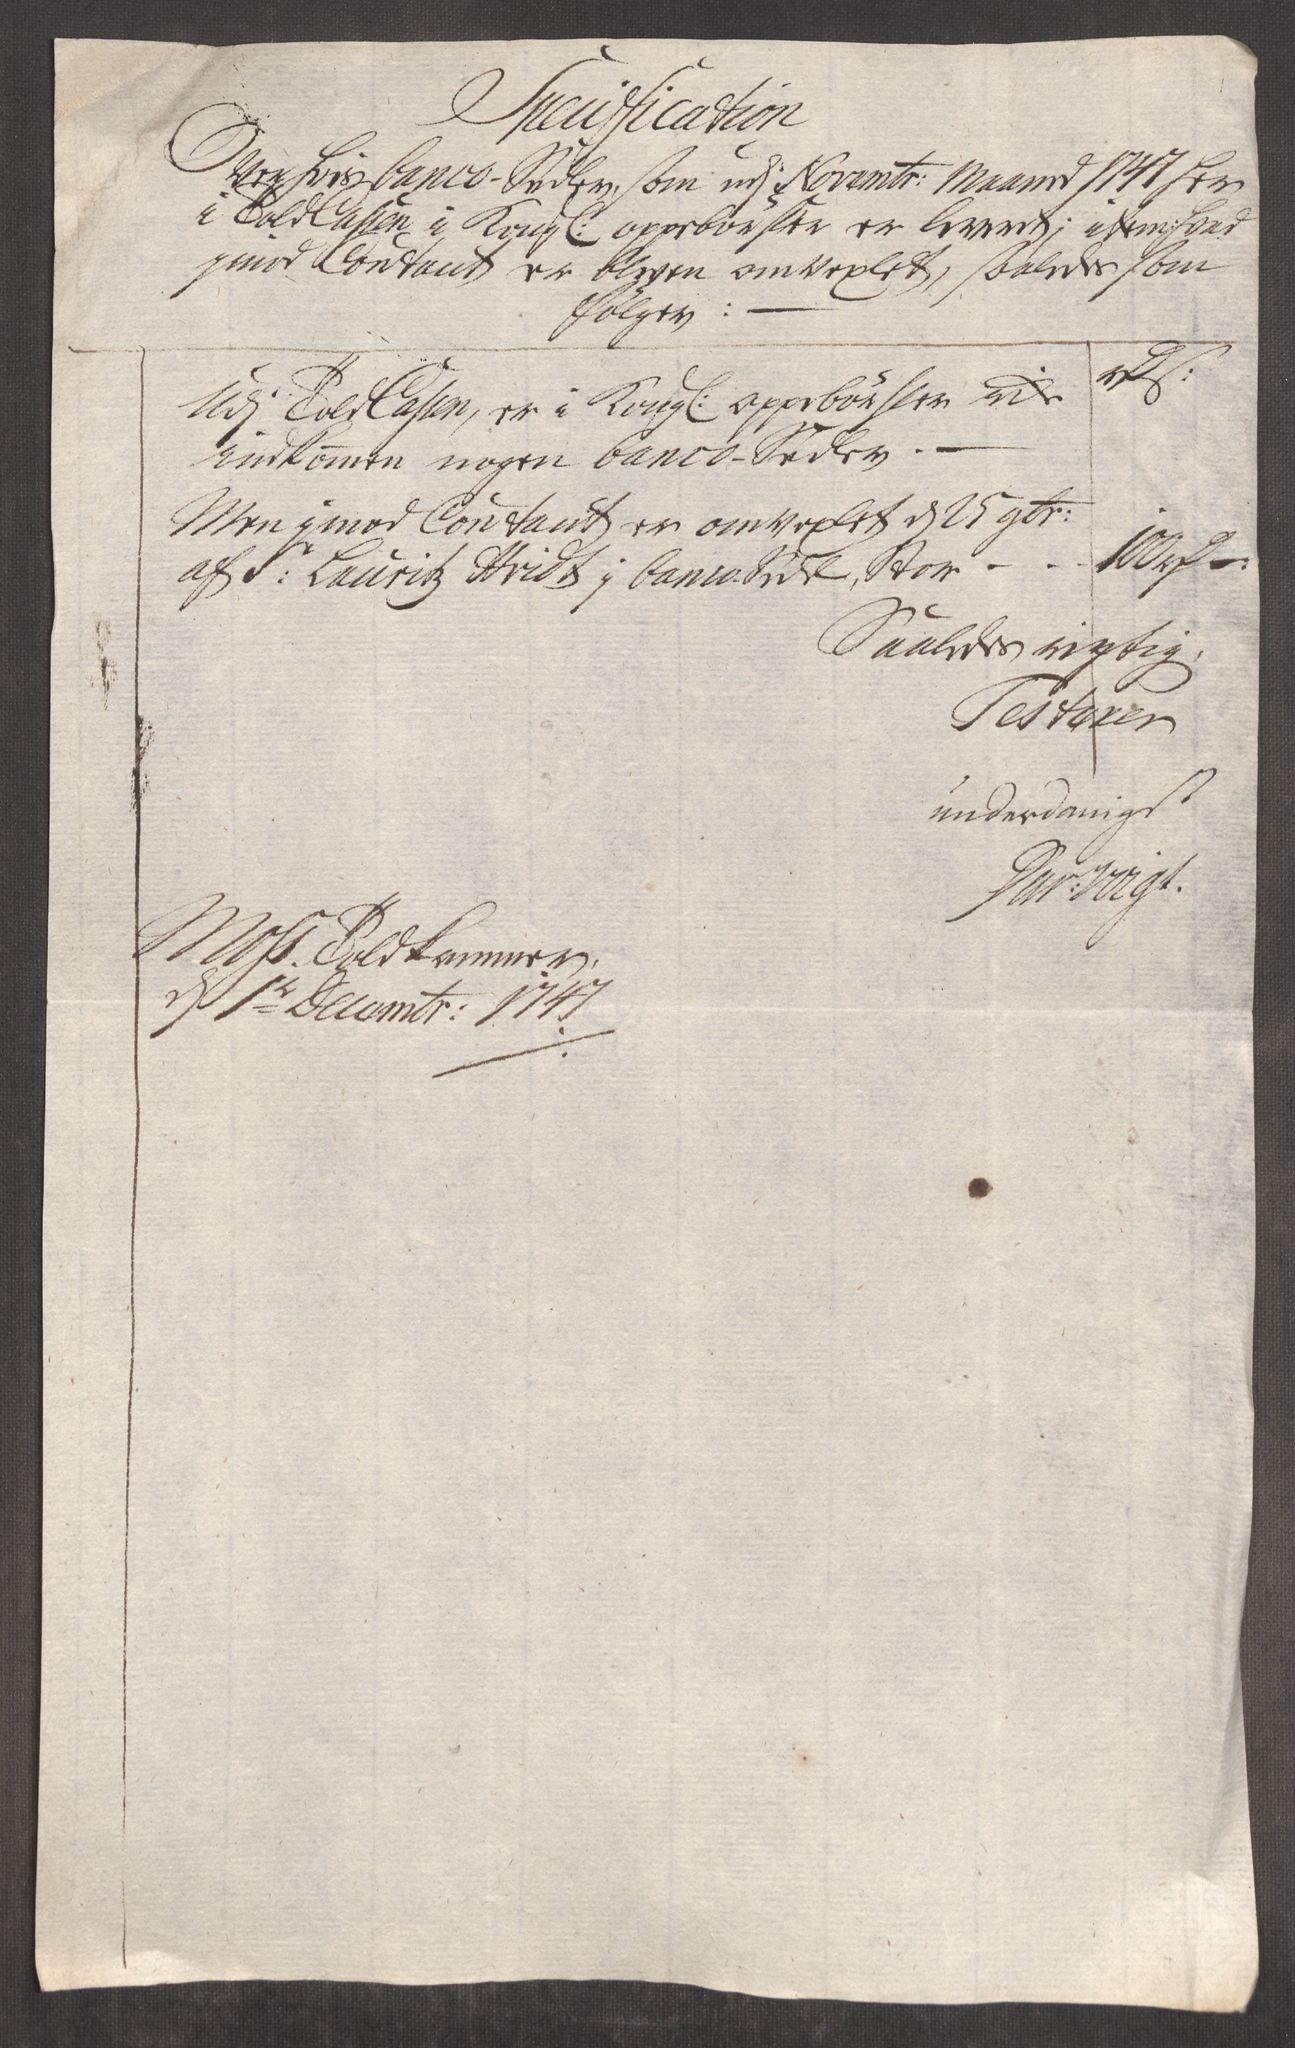 Specification
Over hvis banco-Sedler, som udj Novembr: Maaned 1747 her
i Told Cassen, i Kongl: oppebørsler er leveret; item hvad
jmod Contant er bleven omvexlet, saaledes som
følger: —
rd:
Udj Told Cassen, er i Kongl: oppebørsler
indkommen nogen banco-Sedler. —
Men jmod Contant er omvexlet d 25 9br:
af Sr: Lauritz j banco Sedel, Stor - - - 100 rd —
Saaledes rigtig,
Testerer
underdanigst
Moss. Toldkammer,
d 1te Decembr: 1747